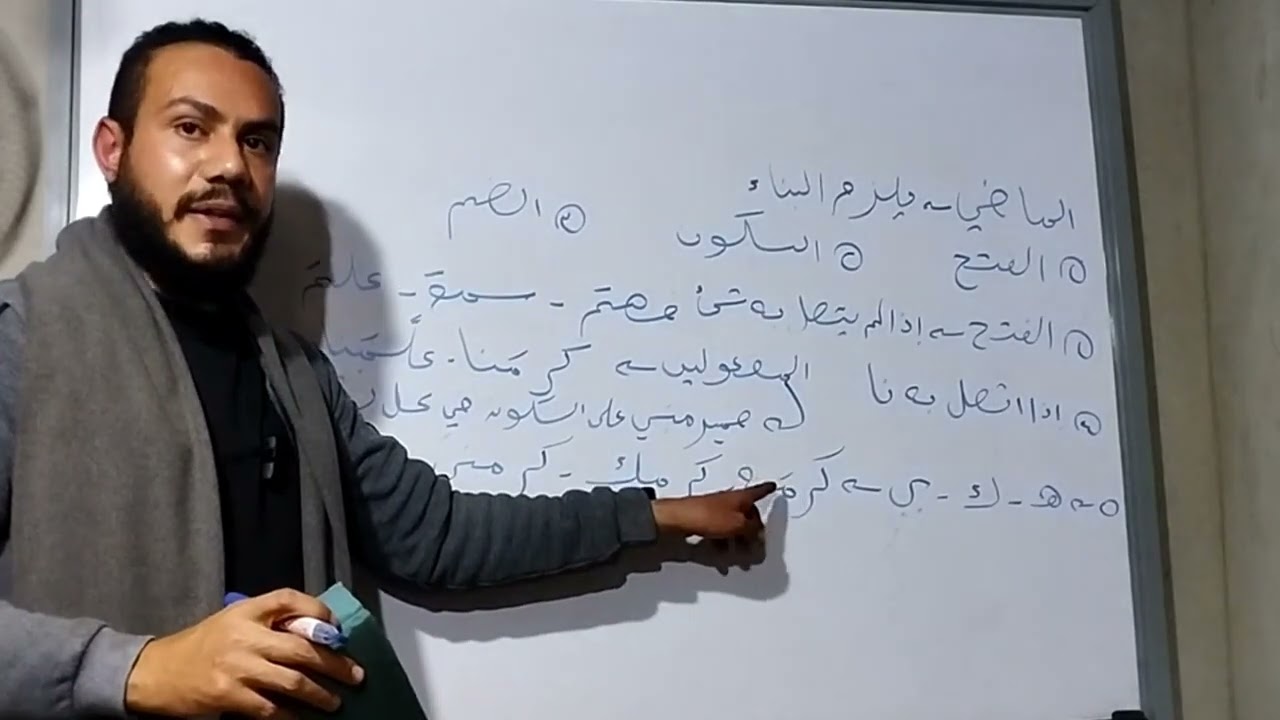 الماضي ← يلزم البناء
① الفتح ② السكون ③ الضم
① الفتح ← إذا لم يتصل به شئ - سمعَ - علمَ
② اذا اتصل به نا المفعولين ← كرمَنا -
↳ ضمير مبني على السكون في محل
ه - ك - ي ← كرمَه - كرمك - كرمني